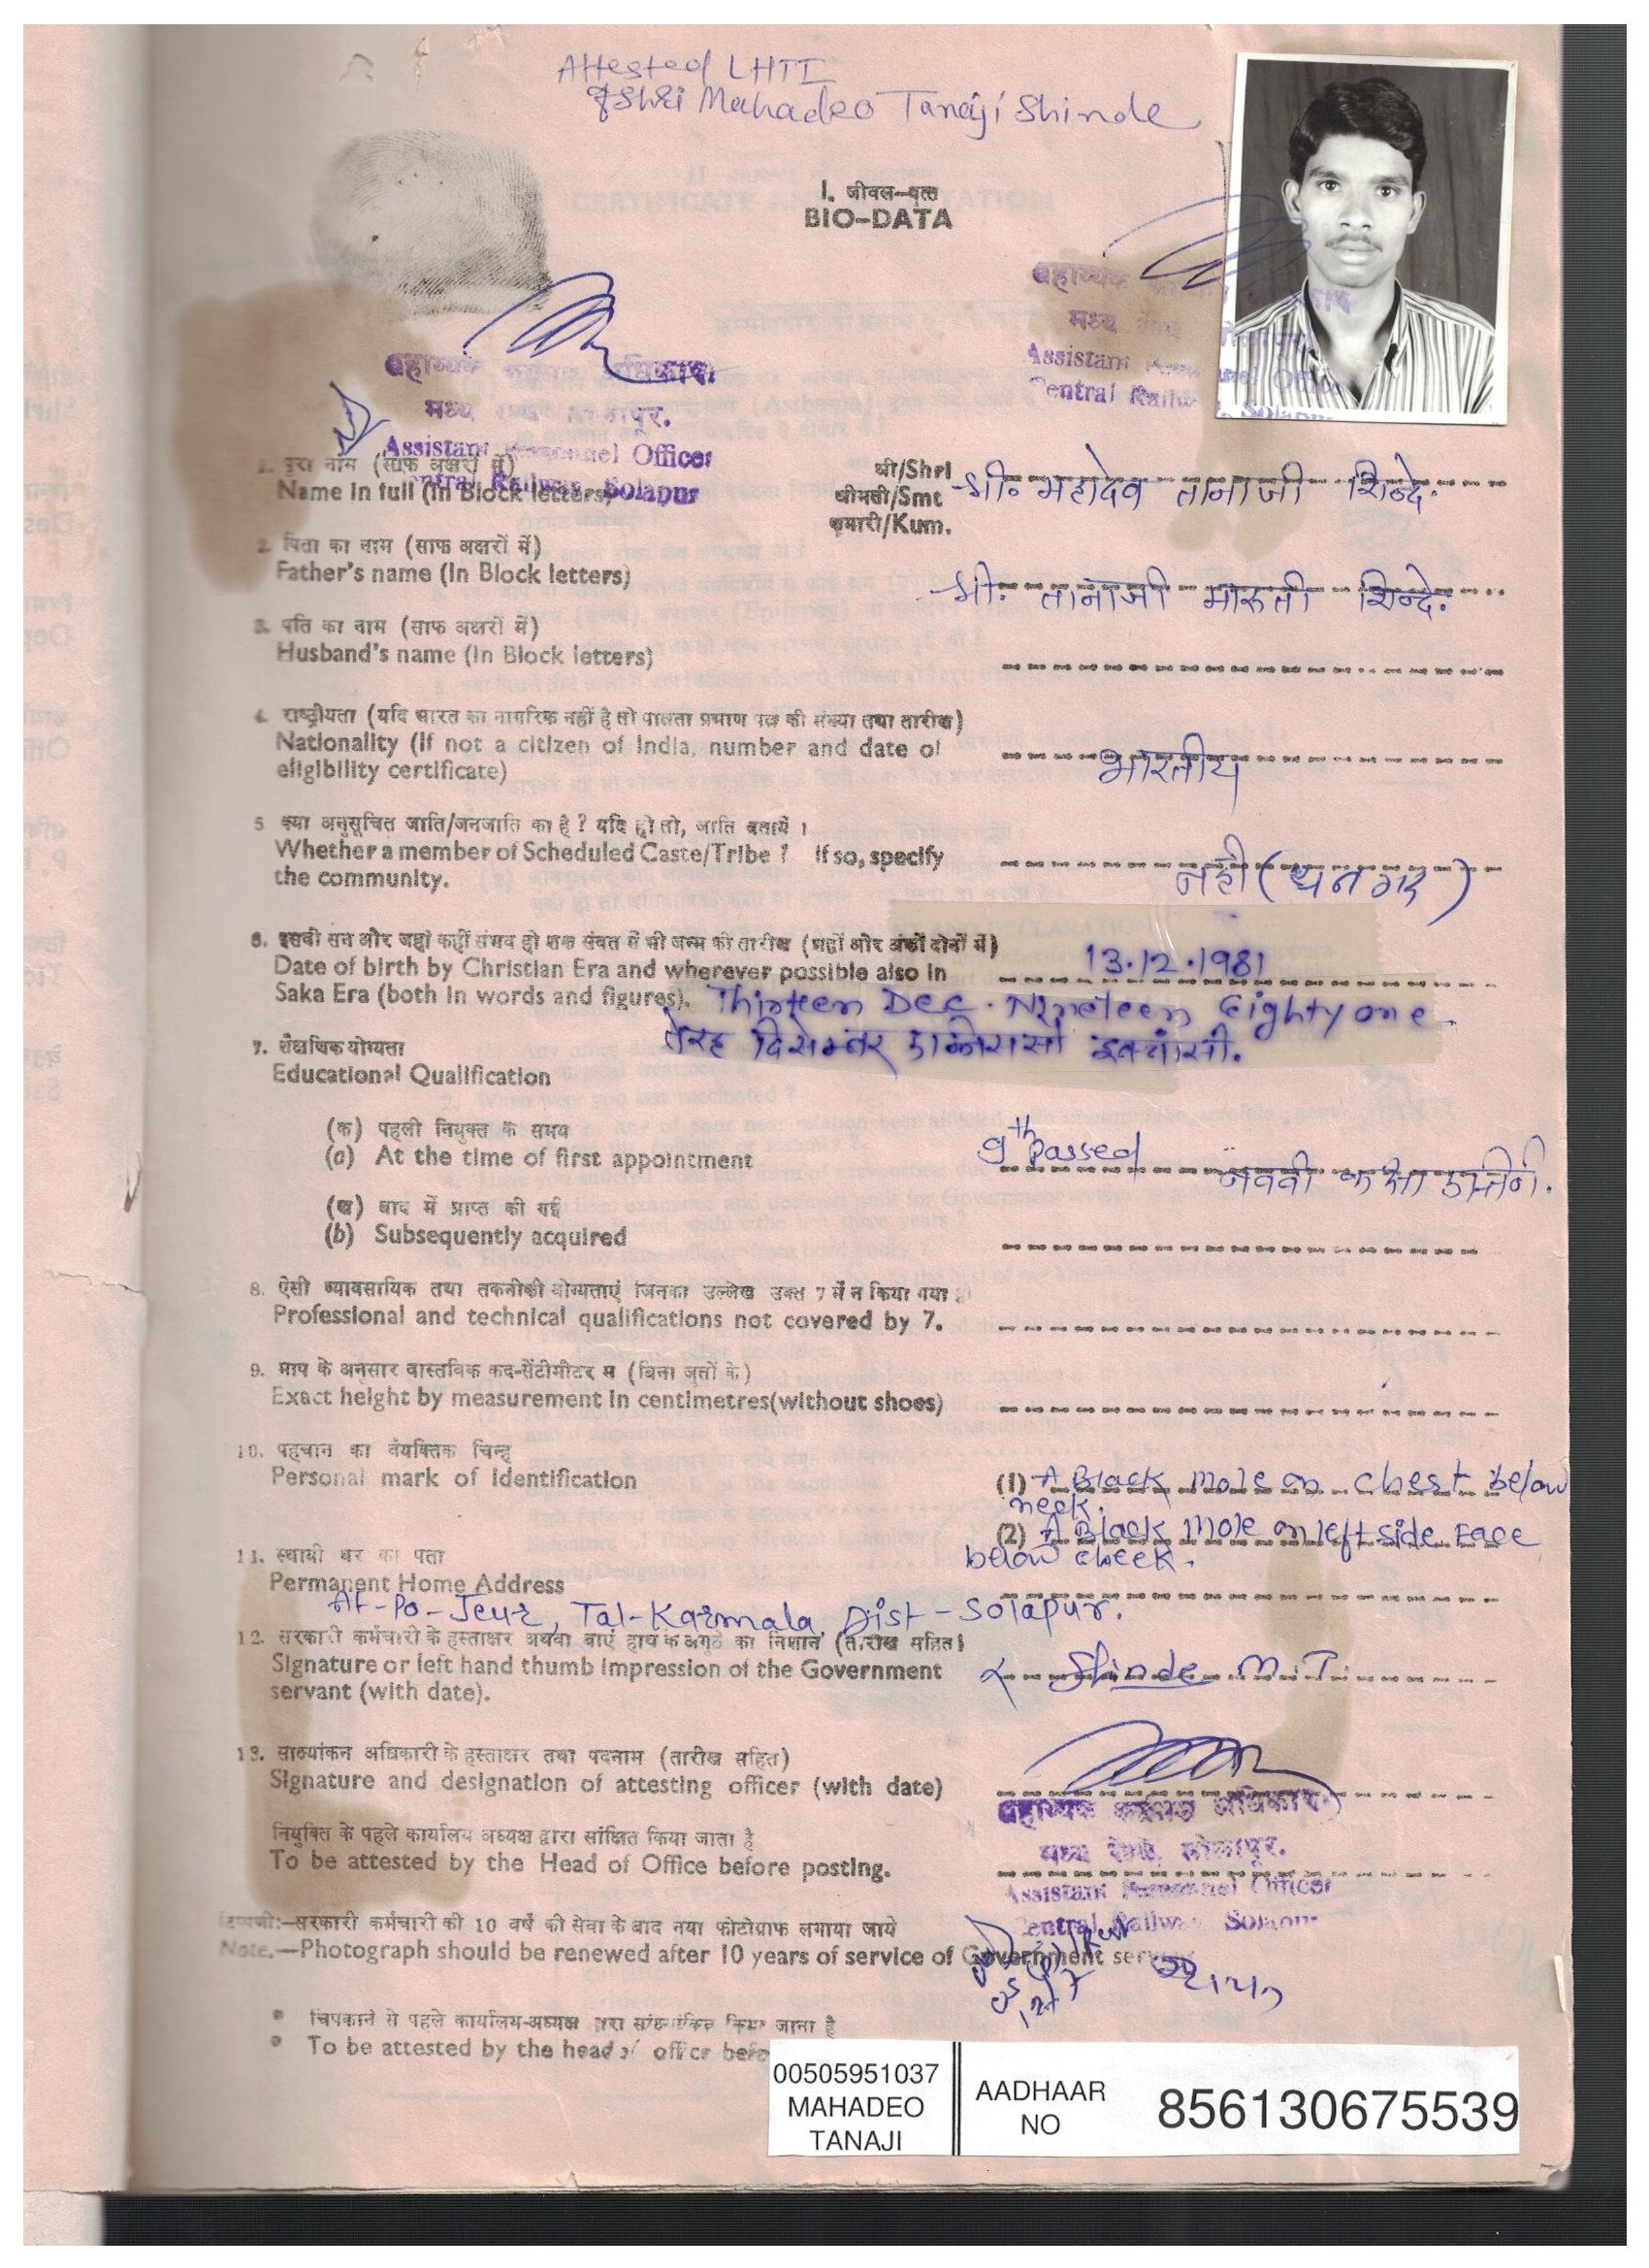 Attested LHTI
of Shri Mahadeo Tanaji Shinde
I. जीवन-वृत्त
BIO-DATA
मध्य रेल्वे सोलापुर.
Assistant Personnel Officer
Central Railway, Solapur
Assistant Personnel Officer
Central Railway, Solapur
1. पूरा नाम (साफ अक्षरों में)
Name in full (In Block letters)
श्री/Shri
श्रीमती/Smt
कुमारी/Kum.
श्री. महादेव तानाजी शिन्दे.
2. पिता का नाम (साफ अक्षरों में)
Father's name (In Block letters)
श्री. तानाजी मारुती शिन्दे.
3. पति का नाम (साफ अक्षरों में)
Husband's name (In Block letters)
4. राष्ट्रीयता (यदि भारत का नागरिक नहीं है तो पात्रता प्रमाण पत्र की संख्या तथा तारीख)
Nationality (If not a citizen of India, number and date of
eligibility certificate)
भारतीय
5 क्या अनुसूचित जाति/जनजाति का है ? यदि हो तो, जाति बतायें ।
Whether a member of Scheduled Caste/Tribe ? If so, specify
the community.
नही (धनगर)
6. इसवी सन और जहां कहीं संभव हो शक संवत में भी जन्म की तारीख (शब्दों और अंकों दोनों में)
Date of birth by Christian Era and wherever possible also in
Saka Era (both in words and figures).
13.12.1981
Thirteen Dec. Nineteen Eighty one
तेरह दिसेम्बर
7. शैक्षणिक योग्यता
Educational Qualification
(क) पहली नियुक्त के समय
(a) At the time of first appointment
9th passed नववी कक्षा
(ख) बाद में प्राप्त की गई
(b) Subsequently acquired
8. ऐसी व्यावसायिक तथा तकनीकी योग्यताएं जिनका उल्लेख उक्त 7 में न किया गया हो
Professional and technical qualifications not covered by 7.
9. माप के अनुसार वास्तविक कद-सेंटीमीटर म (बिना जूतों के)
Exact height by measurement in centimetres(without shoes)
10. पहचान का वैयक्तिक चिन्ह
Personal mark of identification
(1) A Black mole on chest below
neck.
(2) A Black mole on left side Face
below cheek.
11. स्थायी घर का पता
Permanent Home Address
At-Po-Jeur, Tal-Karmala, Dist-Solapur.
12. सरकारी कर्मचारी के हस्ताक्षर अथवा बाएं हाथ क अगूठे का निशान (तारीख सहित)
Signature or left hand thumb impression of the Government
servant (with date).
Shinde M.T.
13. साक्ष्यांकन अधिकारी के हस्ताक्षर तथा पदनाम (तारीख सहित)
Signature and designation of attesting officer (with date)
नियुक्ति के पहले कार्यालय अध्यक्ष द्वारा सांक्षित किया जाता है
To be attested by the Head of Office before posting.
मध्य रेल्वे, सोलापुर.
Assistant Personnel Officer
Central Railway Solapur
टिप्पणी:-सरकारी कर्मचारी की 10 वर्ष की सेवा के बाद नया फोटोग्राफ लगाया जाये
Note.—Photograph should be renewed after 10 years of service of Government
चिपकाने से पहले कार्यालय-अध्यक्ष द्वारा किया जाना है
To be attested by the head of office
00505951037
MAHADEO
TANAJI
AADHAAR
NO
856130675539